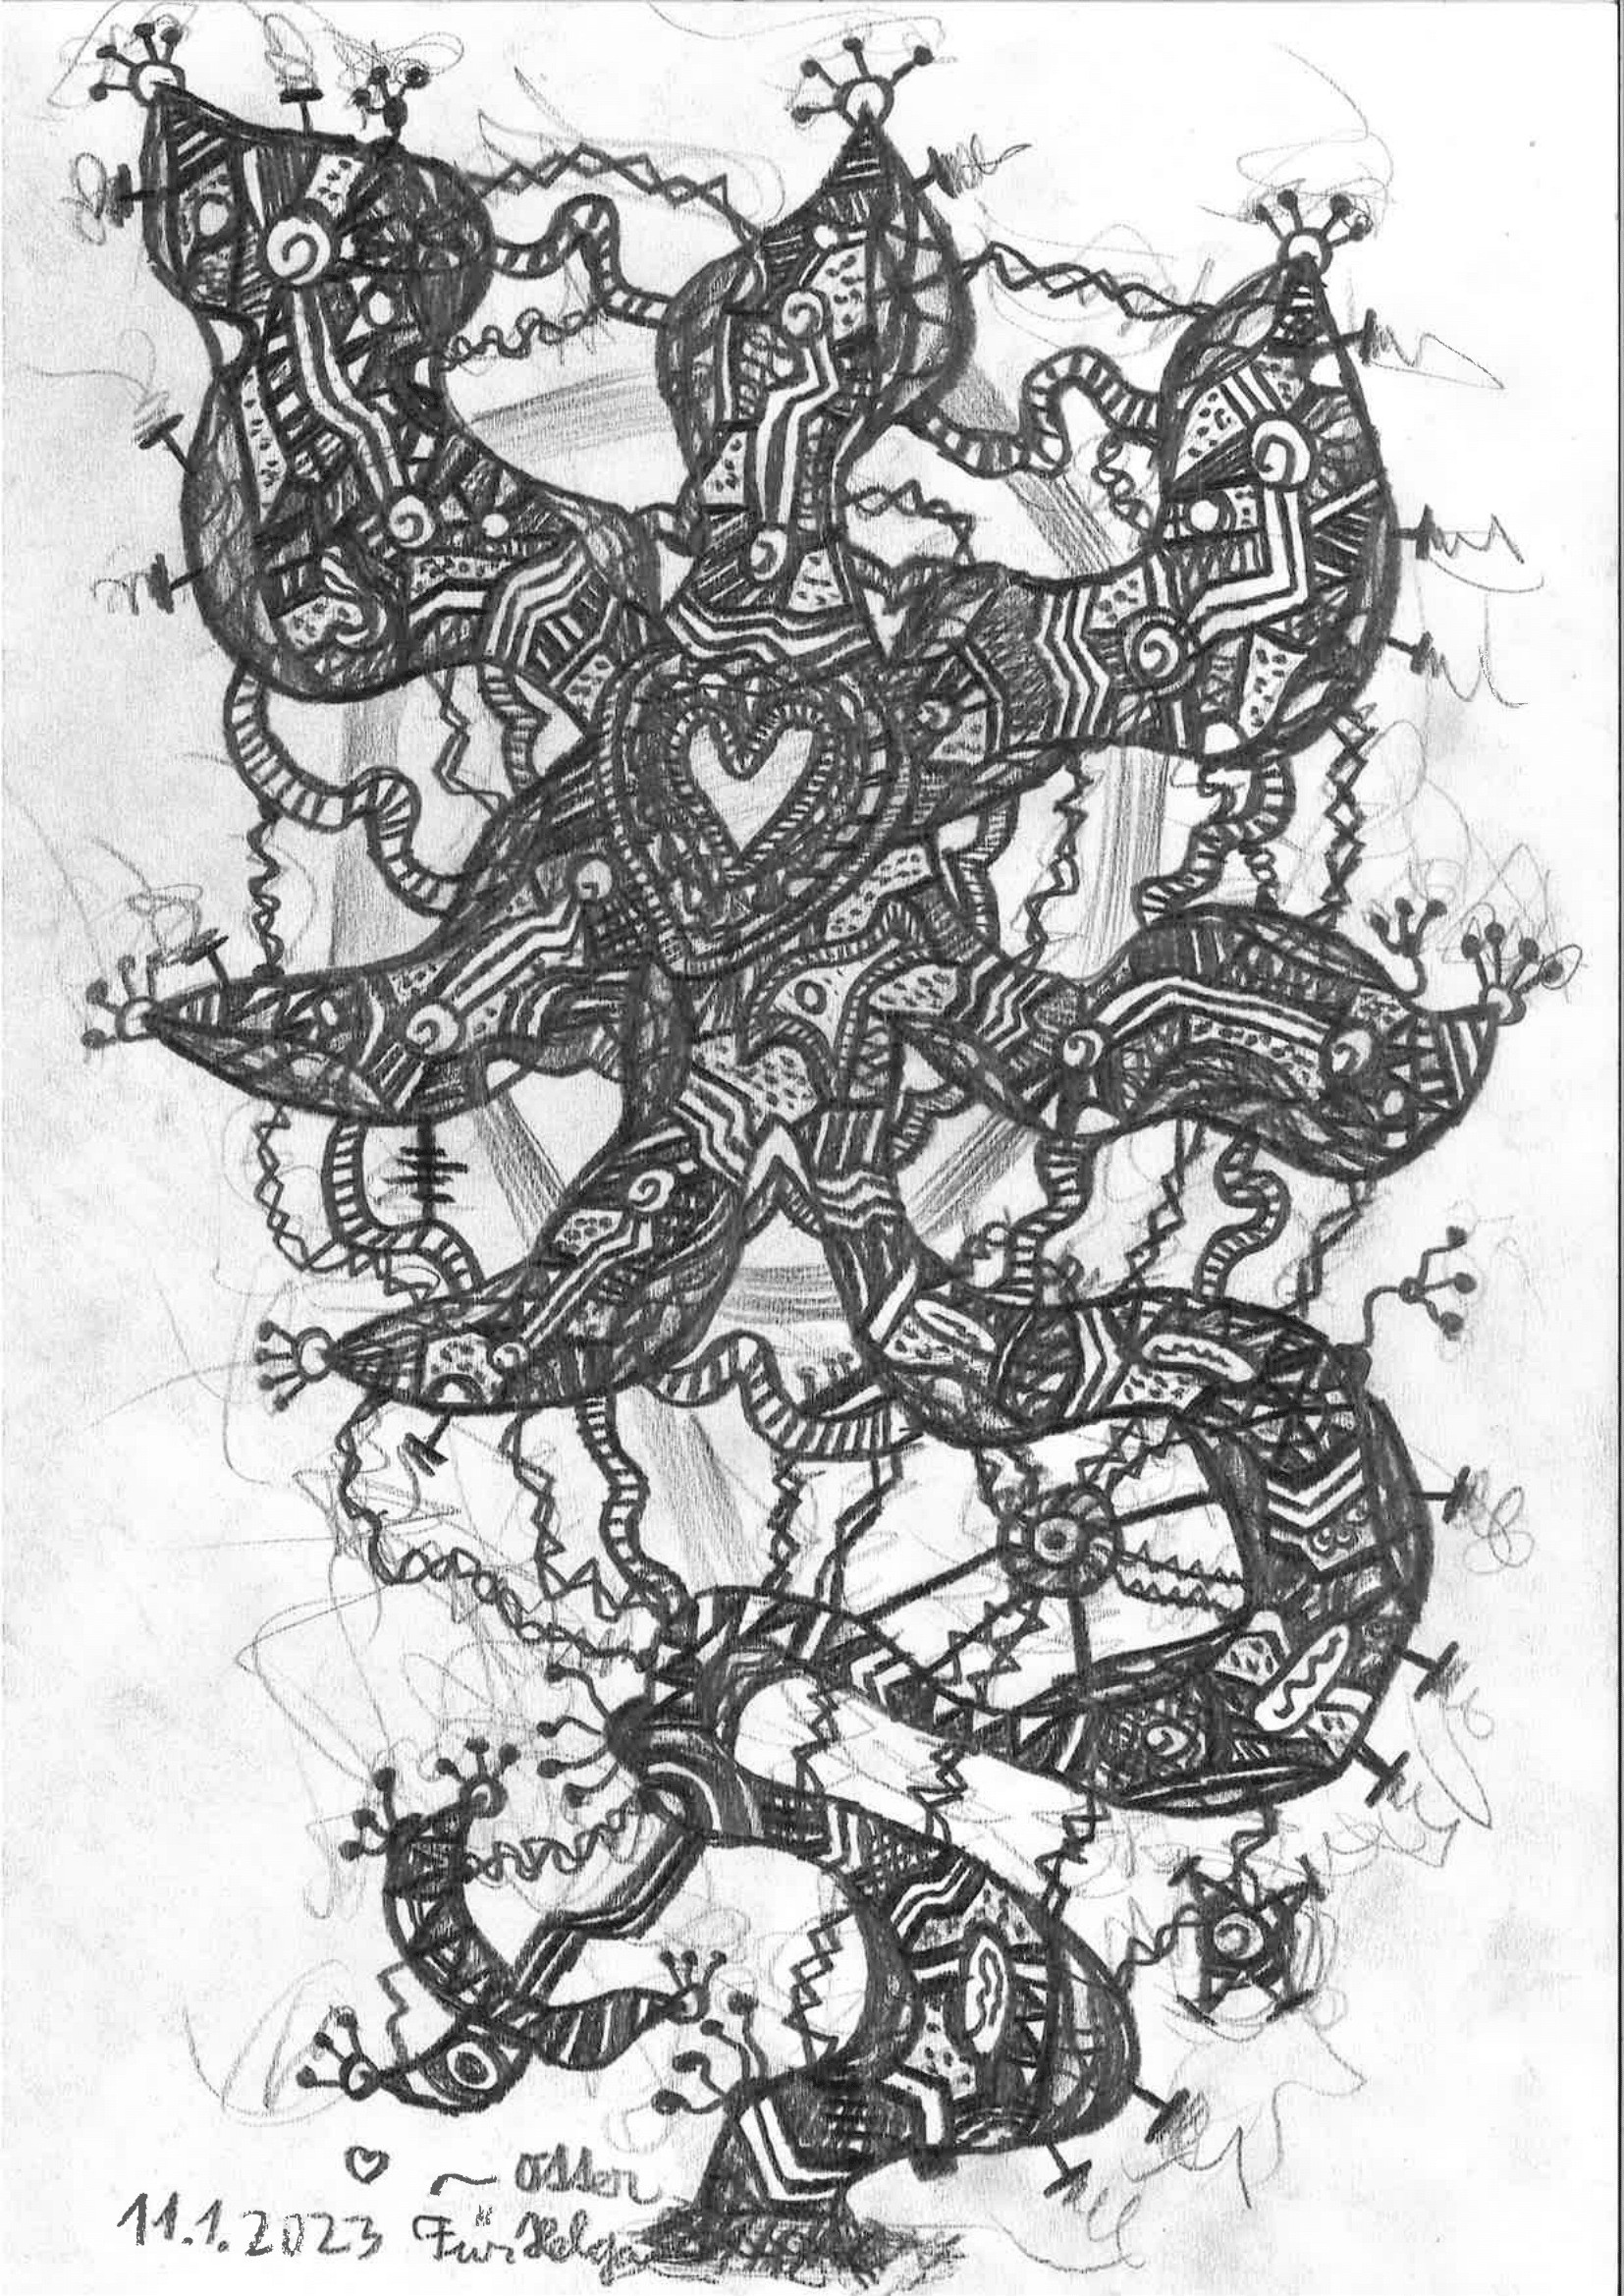 ♡ ~ Otter
11.1.2023 Für Helga